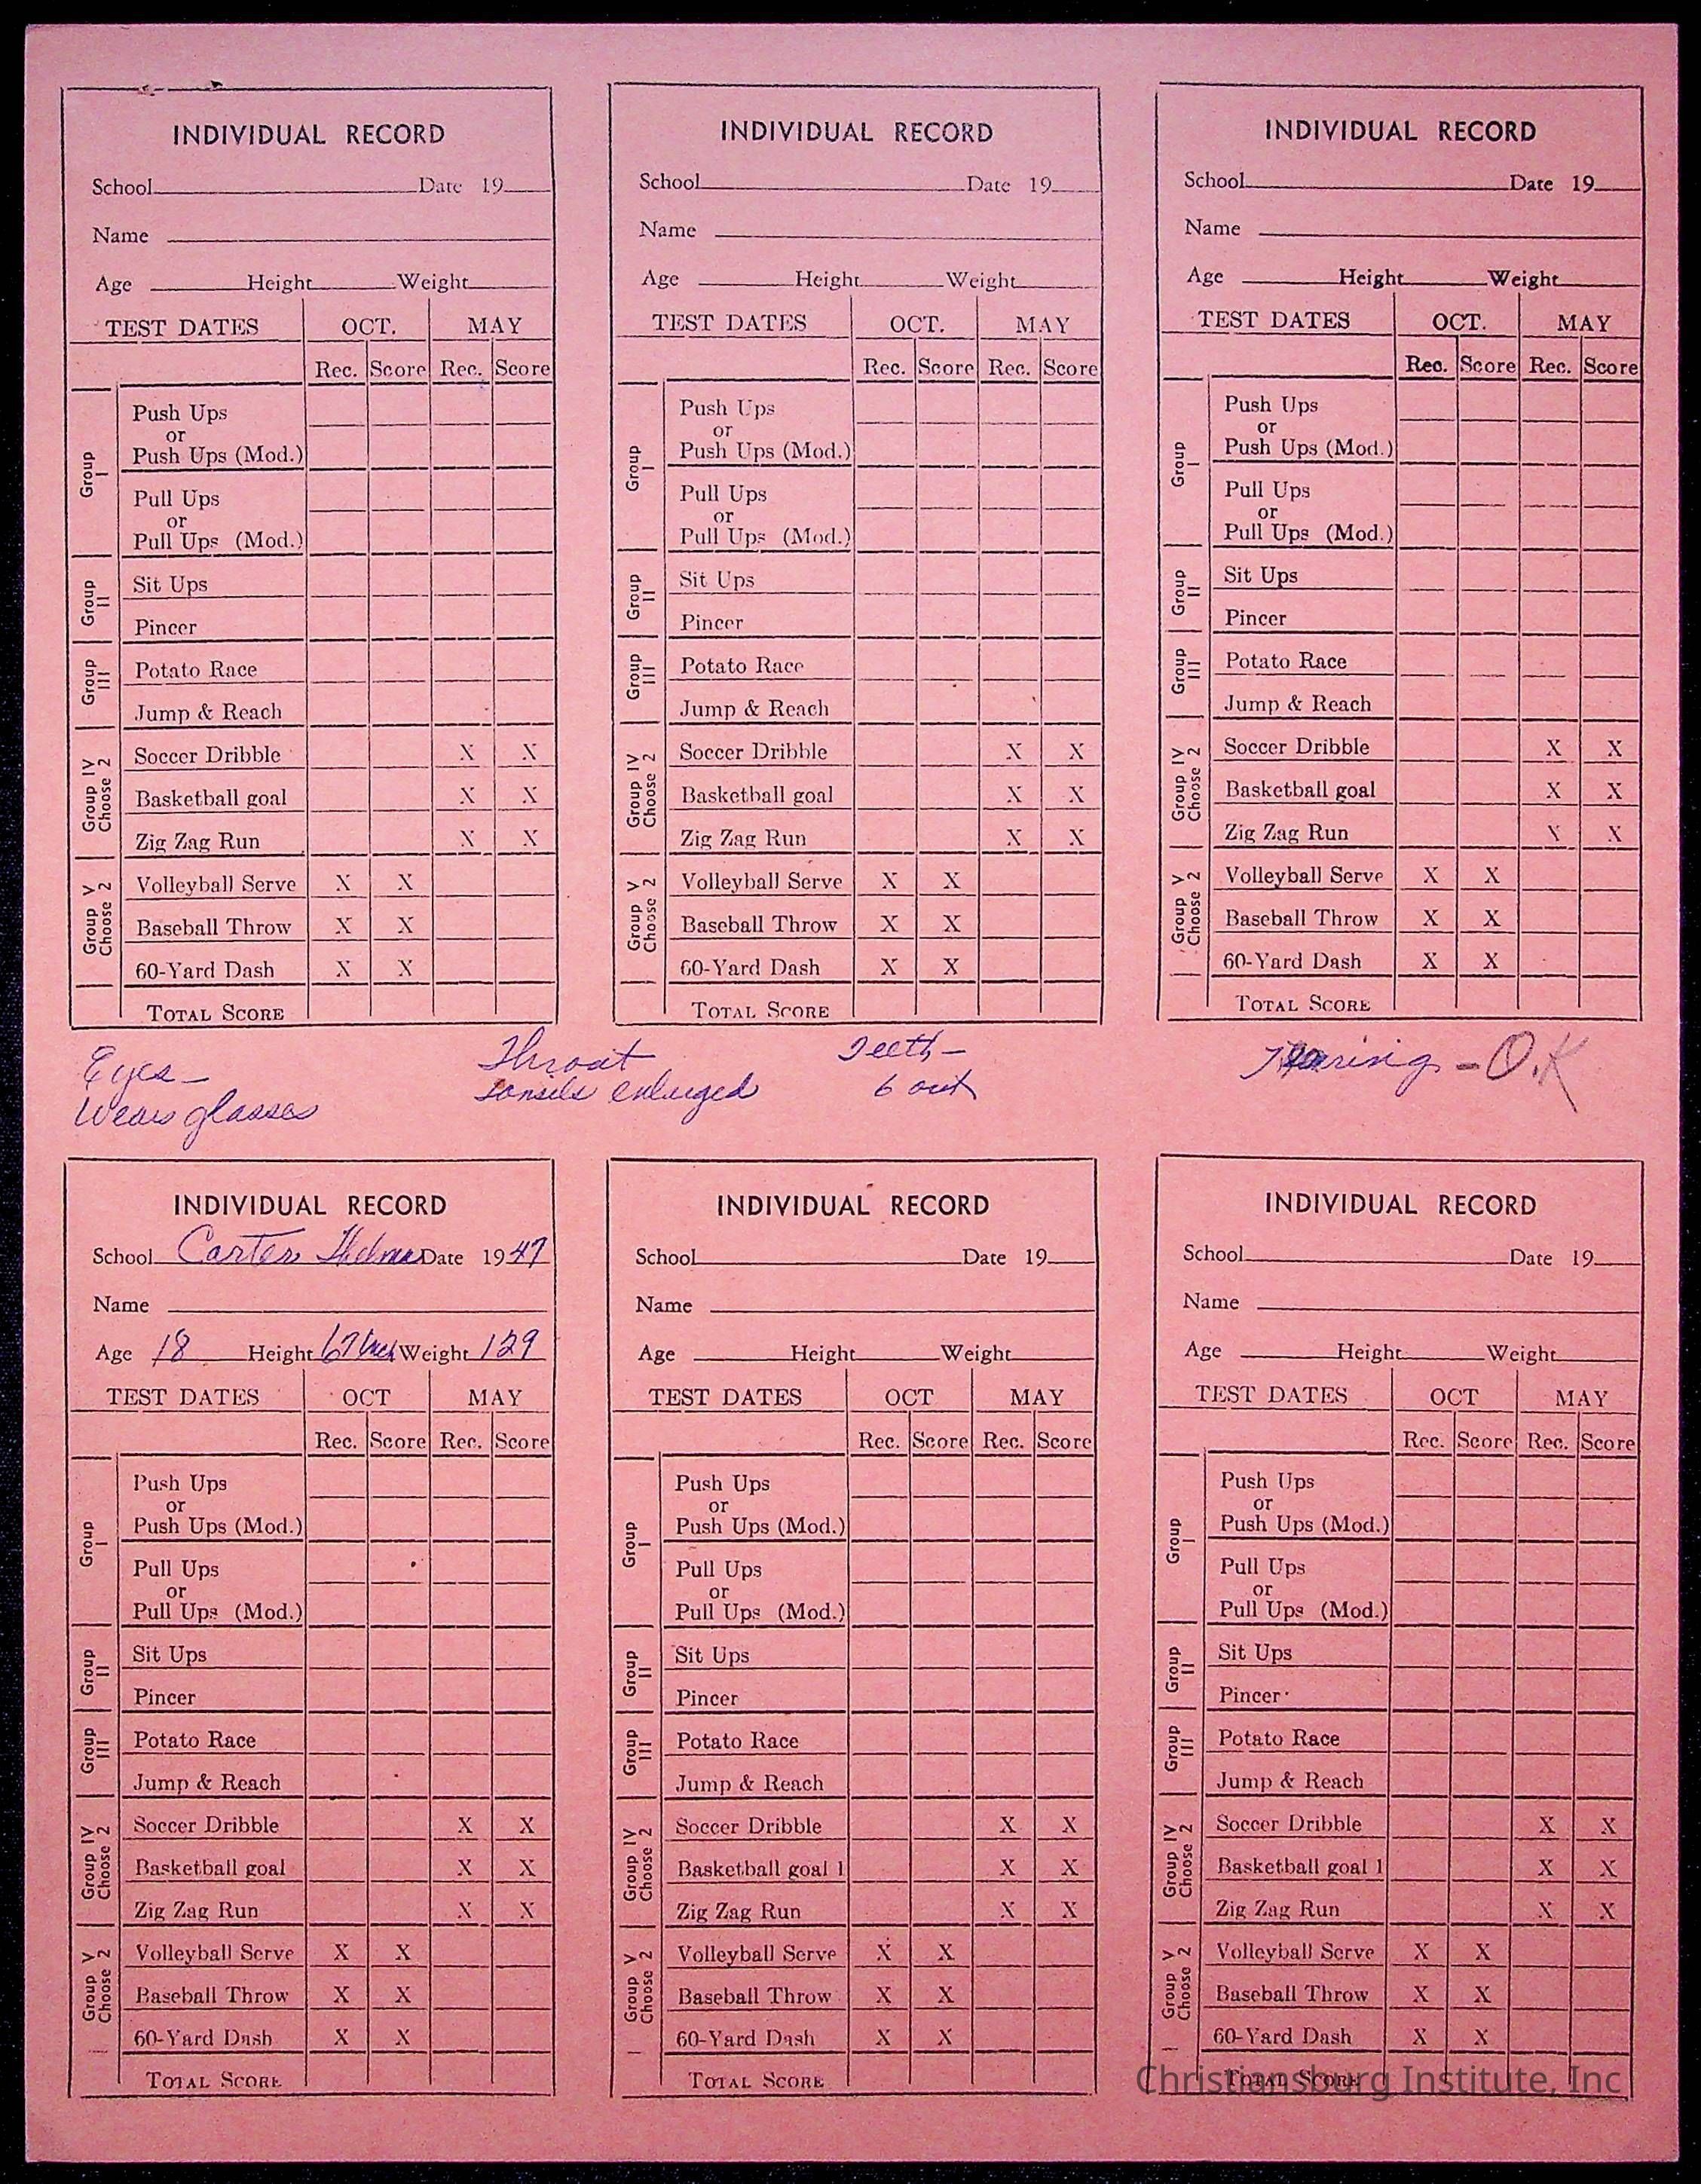 INDIVIDUAL RECORD
School Date 19
Name
Age Height Weight
TEST DATES OCT. MAY
Rec. Score Rec. Score
Group I
Push Ups
or
Push Ups (Mod.)
Pull Ups
or
Pull Ups (Mod.)
Group II
Sit Ups
Pincer
Group III
Potato Race
Jump & Reach
Group IV Choose 2
Soccer Dribble X X
Basketball goal X X
Zig Zag Run X X
Group V Choose 2
Volleyball Serve X X
Baseball Throw X X
60-Yard Dash X X
TOTAL SCORE
INDIVIDUAL RECORD
School Date 19
Name
Age Height Weight
TEST DATES OCT. MAY
Rec. Score Rec. Score
Group I
Push Ups
or
Push Ups (Mod.)
Pull Ups
or
Pull Ups (Mod.)
Group II
Sit Ups
Pincer
Group III
Potato Race
Jump & Reach
Group IV Choose 2
Soccer Dribble X X
Basketball goal X X
Zig Zag Run X X
Group V Choose 2
Volleyball Serve X X
Baseball Throw X X
60-Yard Dash X X
TOTAL SCORE
INDIVIDUAL RECORD
School Date 19
Name
Age Height Weight
TEST DATES OCT. MAY
Rec. Score Rec. Score
Group I
Push Ups
or
Push Ups (Mod.)
Pull Ups
or
Pull Ups (Mod.)
Group II
Sit Ups
Pincer
Group III
Potato Race
Jump & Reach
Group IV Choose 2
Soccer Dribble X X
Basketball goal X X
Zig Zag Run X X
Group V Choose 2
Volleyball Serve X X
Baseball Throw X X
60-Yard Dash X X
TOTAL SCORE
Eyes-
Wears glasses
Throat
tonsils enlarged
Teeth-
6 out
Hearing - O.K
INDIVIDUAL RECORD
School Carter Thelma Date 1947
Name
Age 18 Height 67 Weight 129
TEST DATES OCT MAY
Rec. Score Rec. Score
Group I
Push Ups
or
Push Ups (Mod.)
Pull Ups
or
Pull Ups (Mod.)
Group II
Sit Ups
Pincer
Group III
Potato Race
Jump & Reach
Group IV Choose 2
Soccer Dribble X X
Basketball goal X X
Zig Zag Run X X
Group V Choose 2
Volleyball Serve X X
Baseball Throw X X
60-Yard Dash X X
TOTAL SCORE
INDIVIDUAL RECORD
School Date 19
Name
Age Height Weight
TEST DATES OCT MAY
Rec. Score Rec. Score
Group I
Push Ups
or
Push Ups (Mod.)
Pull Ups
or
Pull Ups (Mod.)
Group II
Sit Ups
Pincer
Group III
Potato Race
Jump & Reach
Group IV Choose 2
Soccer Dribble X X
Basketball goal 1 X X
Zig Zag Run X X
Group V Choose 2
Volleyball Serve X X
Baseball Throw X X
60-Yard Dash X X
TOTAL SCORE
INDIVIDUAL RECORD
School Date 19
Name
Age Height Weight
TEST DATES OCT MAY
Rec. Score Rec. Score
Group I
Push Ups
or
Push Ups (Mod.)
Pull Ups
or
Pull Ups (Mod.)
Group II
Sit Ups
Pincer
Group III
Potato Race
Jump & Reach
Group IV Choose 2
Soccer Dribble X X
Basketball goal 1 X X
Zig Zag Run X X
Group V Choose 2
Volleyball Serve X X
Baseball Throw X X
60-Yard Dash X X
TOTAL SCORE
Christiansburg Institute, Inc